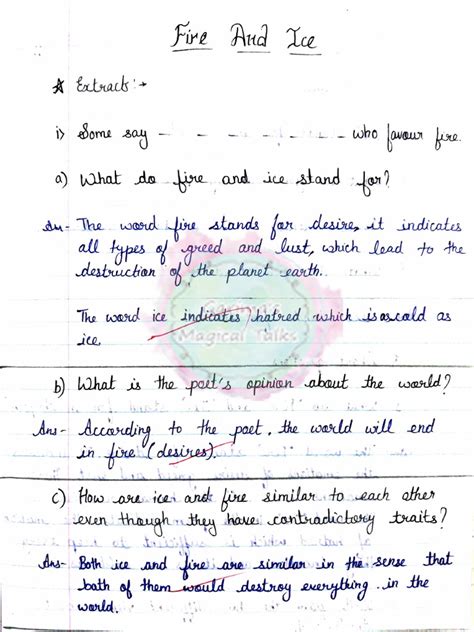 Fire And Ice
☆ Extracts :→
i) Some say - - - - - - - - who favour fire.
a) What do fire and ice stand for?
Ans- The word fire stands for desire, it indicates
all types of greed and lust, which lead to the
destruction of the planet earth.
The word ice indicates hatred which is as cold as
ice.
Magical Talks
b) What is the poet's opinion about the world?
Ans- According to the poet, the world will end
in fire (desires).
c) How are ice and fire similar to each other
even though they have contradictory traits?
Ans- Both ice and fire are similar in the sense that
both of them would destroy everything in the
world.